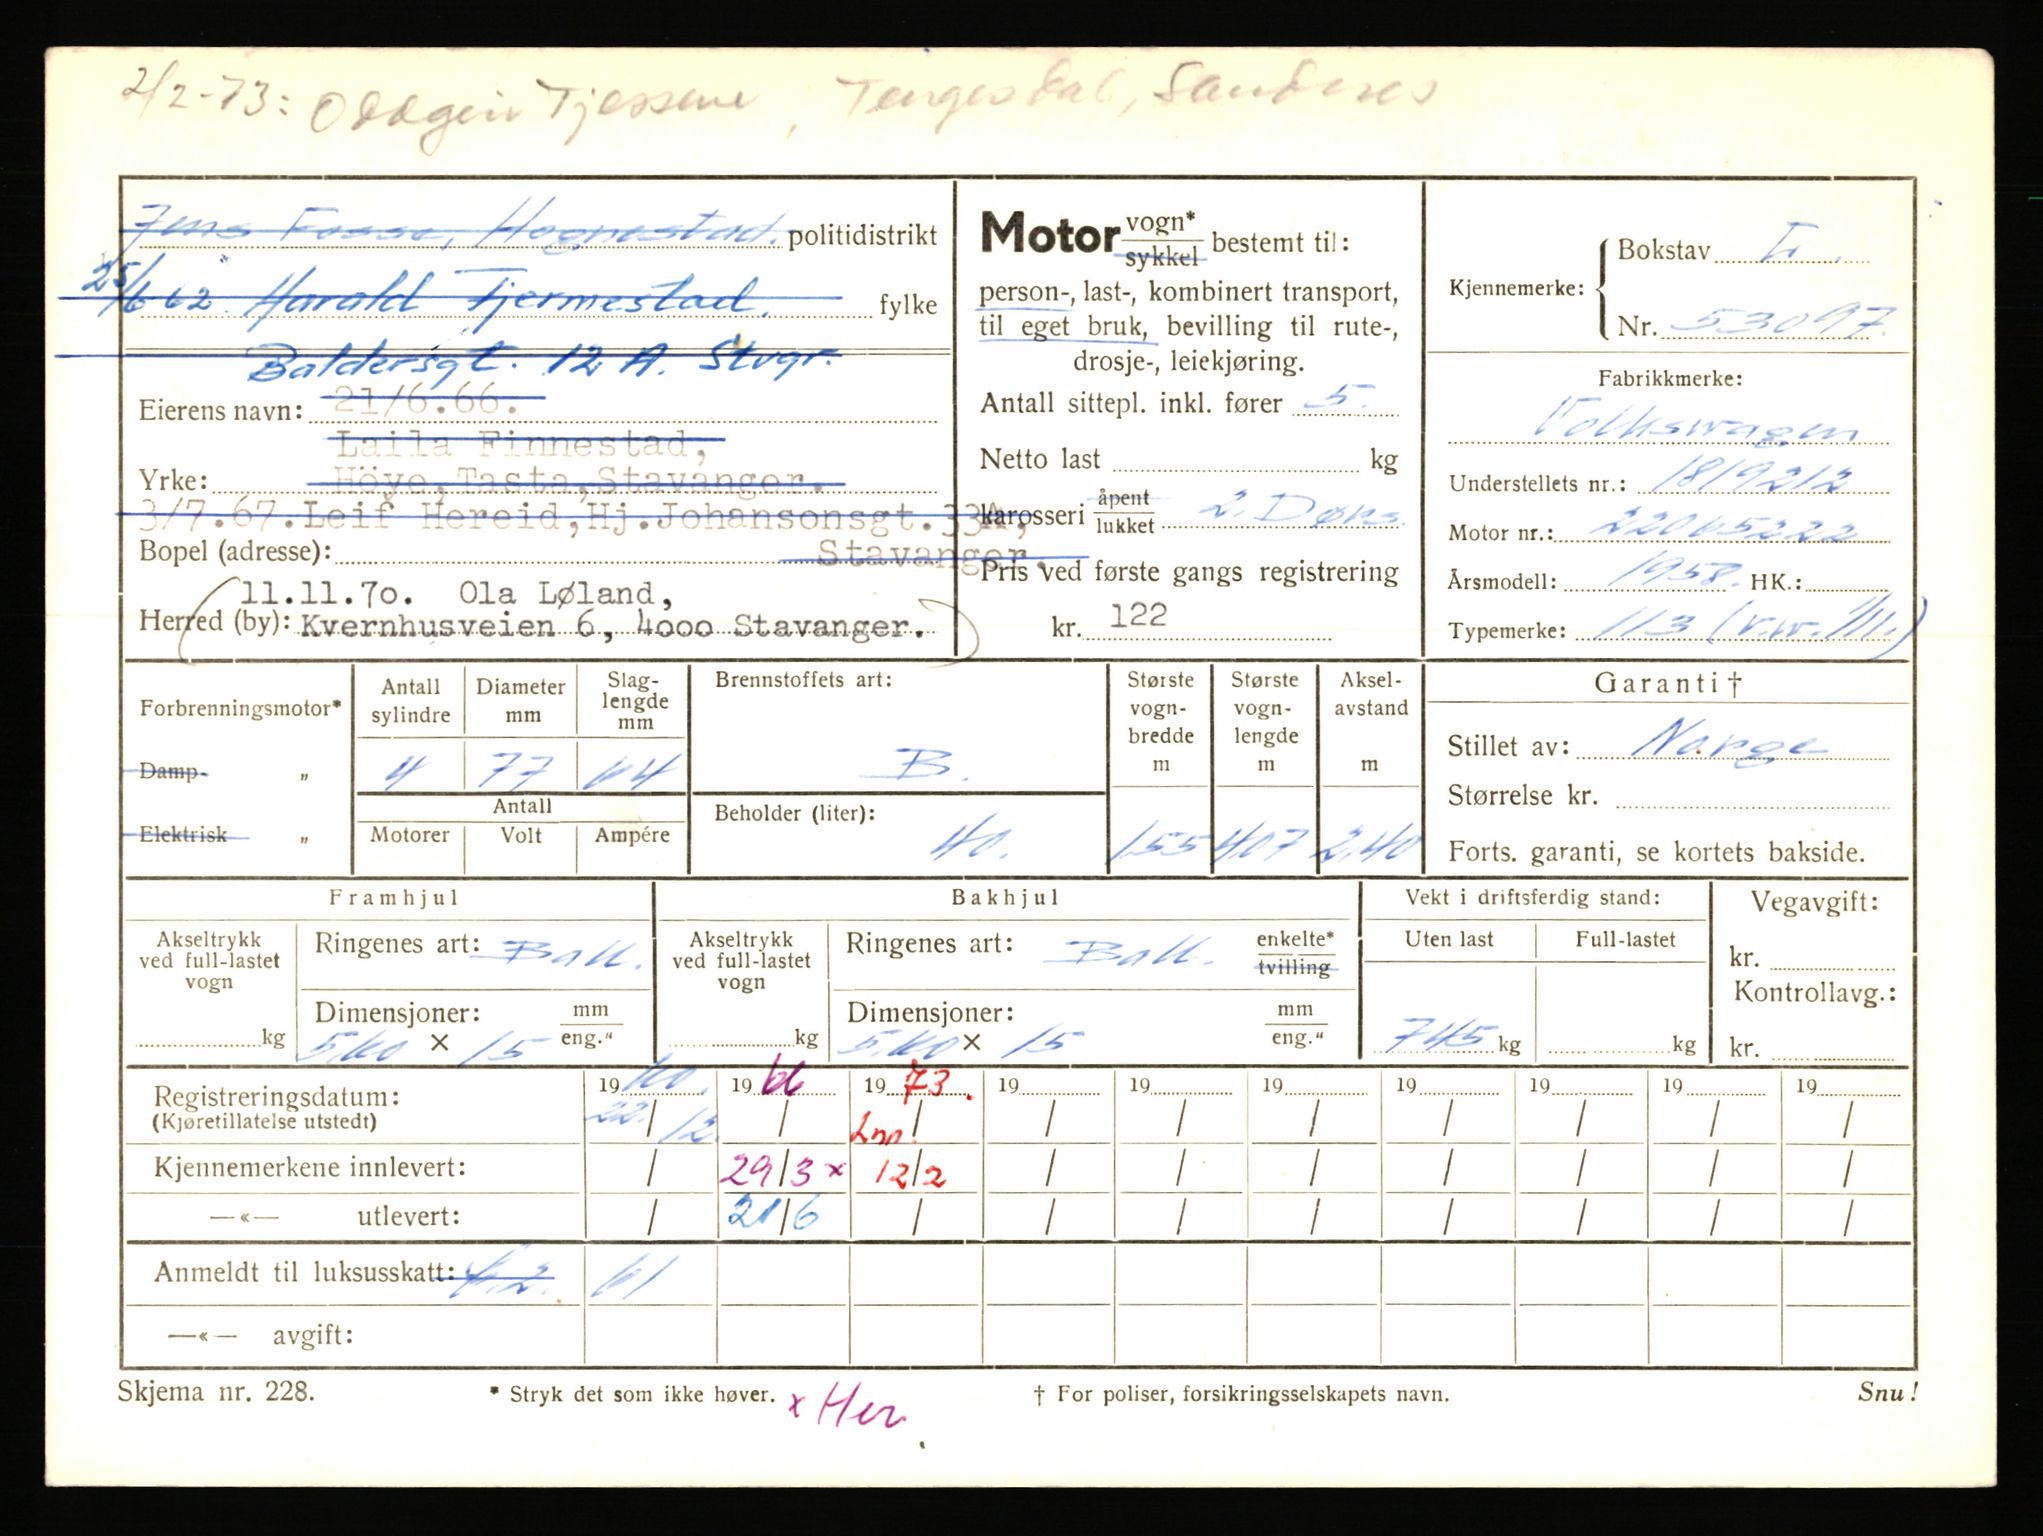 2/2-73: Oddgeir Tjessem, Tengesdal, Sandnes
Jens Fosse, Hognestad. politidistrikt
25/6 62 Harald Tjermestad. fylke
Baldersgt. 12 A. Stvgr.
Eierens navn: 21/6.66.
Laila Finnestad,
Yrke: Höye, Tasta, Stavanger.
3/7.67. Leif Hereid, Hj. Johansonsgt. 33A,
Bopel (adresse): Stavanger.
11.11.70. Ola Løland,
Herred (by): Kvernhusveien 6, 4000 Stavanger.
Motor vogn* sykkel bestemt til:
person-, last-, kombinert transport,
til eget bruk, bevilling til rute-,
drosje-, leiekjøring.
Antall sittepl. inkl. fører 5.
Netto last kg
karosseri åpent lukket 2. Dørs.
Pris ved første gangs registrering
kr. 122
Kjennemerke: Bokstav L.
Nr. 53097.
Fabrikkmerke:
Volkswagen
Understellets nr.: 1819212
Motor nr.: 22065222
Årsmodell: 1958. HK.:
Typemerke: 113 (v.w. 111.)
Forbrenningsmotor*
Damp- „
Elektrisk „
Antall sylindre 4
Diameter mm 77
Slaglengde mm 64
Antall
Motorer Volt Ampére
Brennstoffets art:
B.
Beholder (liter):
40.
Største vognbredde m 155
Største vognlengde m 407
Akselavstand m 2.40
Garanti †
Stillet av: Norge
Størrelse kr.
Forts. garanti, se kortets bakside.
Framhjul
Akseltrykk ved full-lastet vogn kg
Ringenes art: Ball.
Dimensjoner: mm eng."
5.60 × 15
Bakhjul
Akseltrykk ved full-lastet vogn kg
Ringenes art: Ball. enkelte* tvilling
Dimensjoner: mm eng."
5.60 × 15
Vekt i driftsferdig stand:
Uten last Full-lastet
745 kg kg
Vegavgift:
kr.
Kontrollavg.:
kr.
Registreringsdatum: 1960. 1966 1973. 19 19 19 19 19 19 19
(Kjøretillatelse utstedt) 22/12 / Inn. / / / / / / / /
Kjennemerkene innlevert: / 29/3 x 12/2 / / / / / / /
—«— utlevert: / 21/6 / / / / / / / /
Anmeldt til luksusskatt: 61
—«— avgift:
Skjema nr. 228. * Stryk det som ikke høver. x Her † For poliser, forsikringsselskapets navn. Snu!